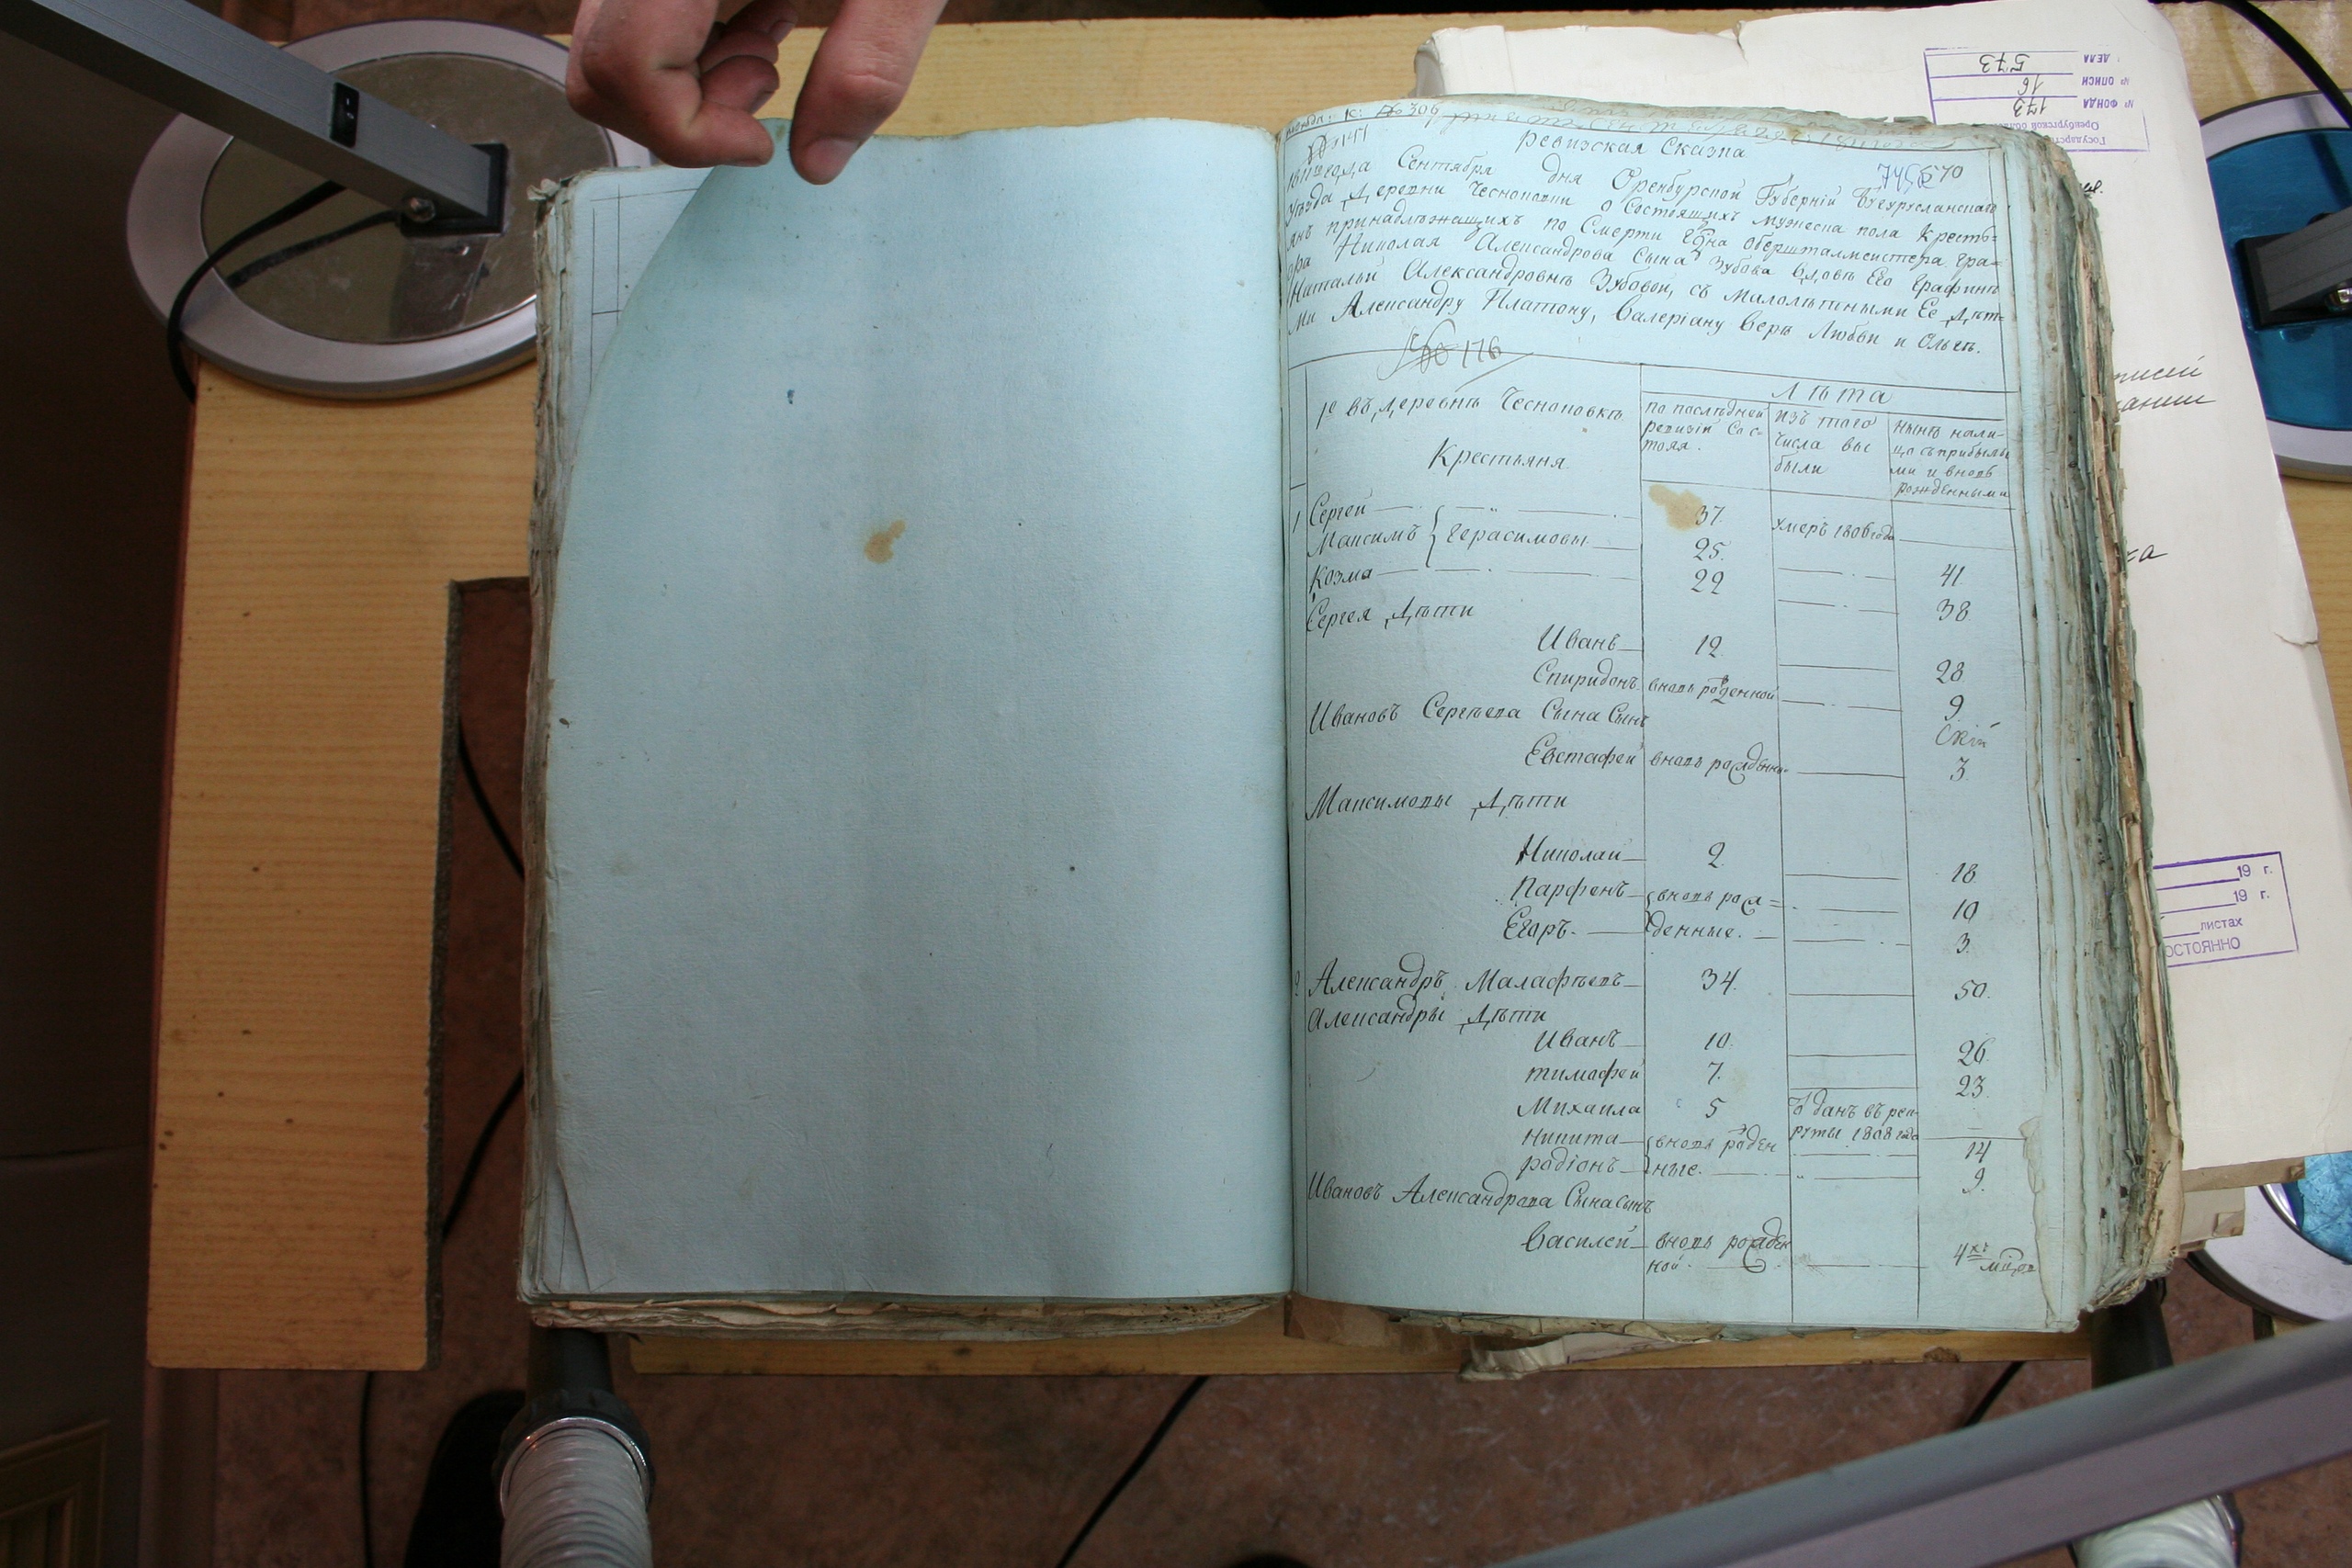 № 306
Ревизская Сказка
745 570
1811го года Сентября дня Оренбурской Губернїй Бугурусланскаго
уѣзда деревни Чесноковки о Состоящихъ мужеска пола Кресть=
янъ принадлѣжащихъ по Смерти Гдна обершталмейстера гра=
фа Николая Александрова Сына Зубова вдовѣ Его Графинѣ
Натальи Александровнѣ Зубовой, съ малолѣтными Ее дѣт=
ми Александру Платону, Валерїану Верѣ Любви и Ольгѣ.
№ 176
Лѣта
1е въ деревнѣ Чесноковкѣ
Крестьяня
по послѣдней
ревизїи Сос-
тоял.
изъ того
числа вы
были
нынѣ нали-
цо съ прибылы
ми и вновь
рожденными
1 Сергей 37. умеръ 1806 года
Максимъ Герасимовы 25. 41.
Козма 22 38
Сергея дѣти
Иванъ 12 28
Спиридонъ вновь рожденной 9
Ивановъ Сергѣева Сына Сынъ
Евстафей вновь рожденн. 3.
Максимовы дѣти
Николай 2 18
Парфенъ вновь рож= 10
Егаръ денные. 3.
2 Александръ Малафѣевъ 34. 50.
Александры дѣти
Иванъ 10. 26.
тимафей 7. 23.
Михаила 5 Отданъ въ рек-
руты 1808 года
Никита вновь рожден 14
радїонъ ные. 9.
Ивановъ Александрова Сына Сынъ
Василей вновь рожден
ной. 4хъ мѣся
№ ФОНДА 173
№ ОПИСИ 16
ДЕЛА 573
19 г.
19 г.
листах